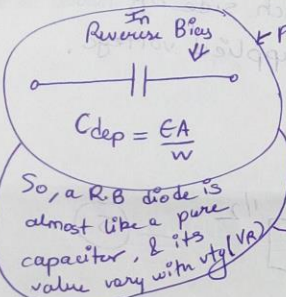 In
Reverse Bias
C dep = ЄA
W
So, a R.B diode is
almost like a pure
capacitor, & its
value vary with vtg (VR)